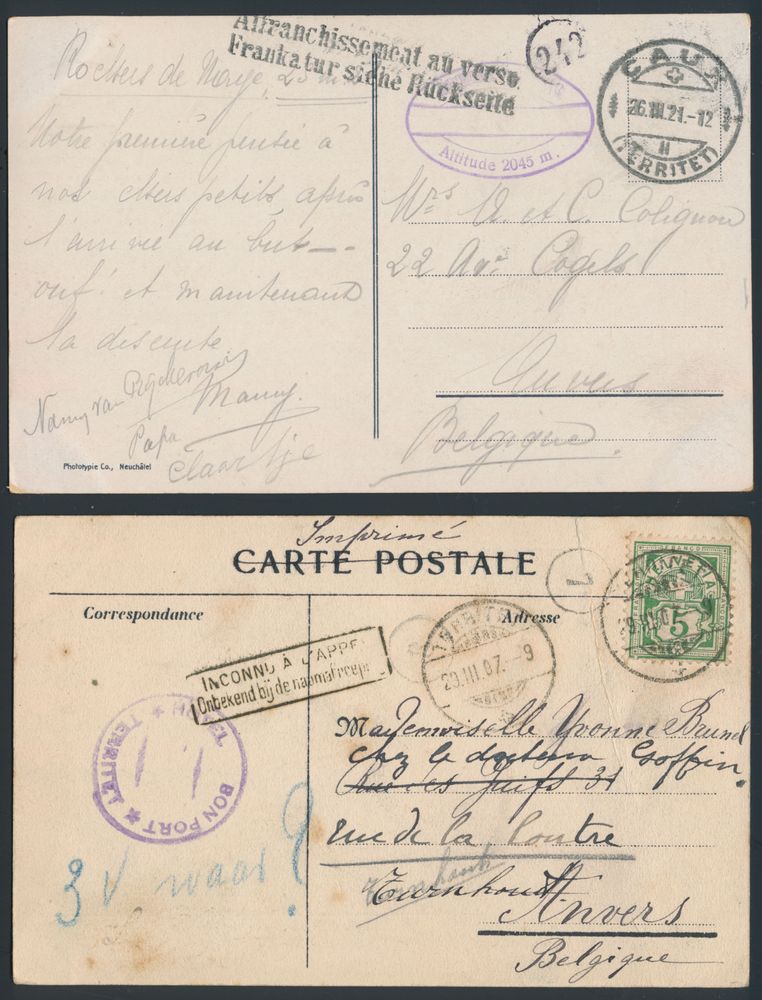 Affranchissement au verso
Frankatur siehe Rückseite
242
CAUX
26.III.21.-12
(TERRITET)
Altitude 2045 m.
Rochers de Naye, 25
Notre première pensée à
nos chers petits après
l'arrivée au but
ouf! et maintenant
la descente
Mamy.
Nany van
Papa
Claartje
Phototypie Co., Neuchâtel
Mrs A. et C. Colignon
22 Ave Cogels
Anvers
Belgique.
Imprimé
CARTE POSTALE
Correspondance
Adresse
INCONNU À L'APPEL
Onbekend bij de naamafroep
TERRITET
29.III.07.-9
HELVETIA
FRANCO
5
29.III.07. 9
L
BON PORT ★ TERRITET ★
Mademoiselle Yvonne Brunel
chez le docteur Goffin.
Rue des Juifs 31
rue de la Loutre
Turnhout
Turnhout
Anvers
Belgique
3 V waar?